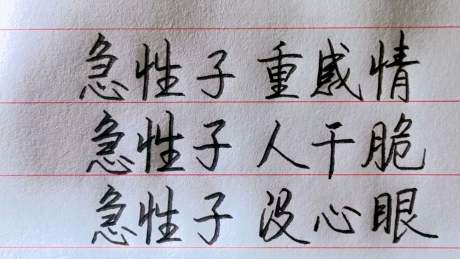 急性子 重感情
急性子 人干脆
急性子 没心眼